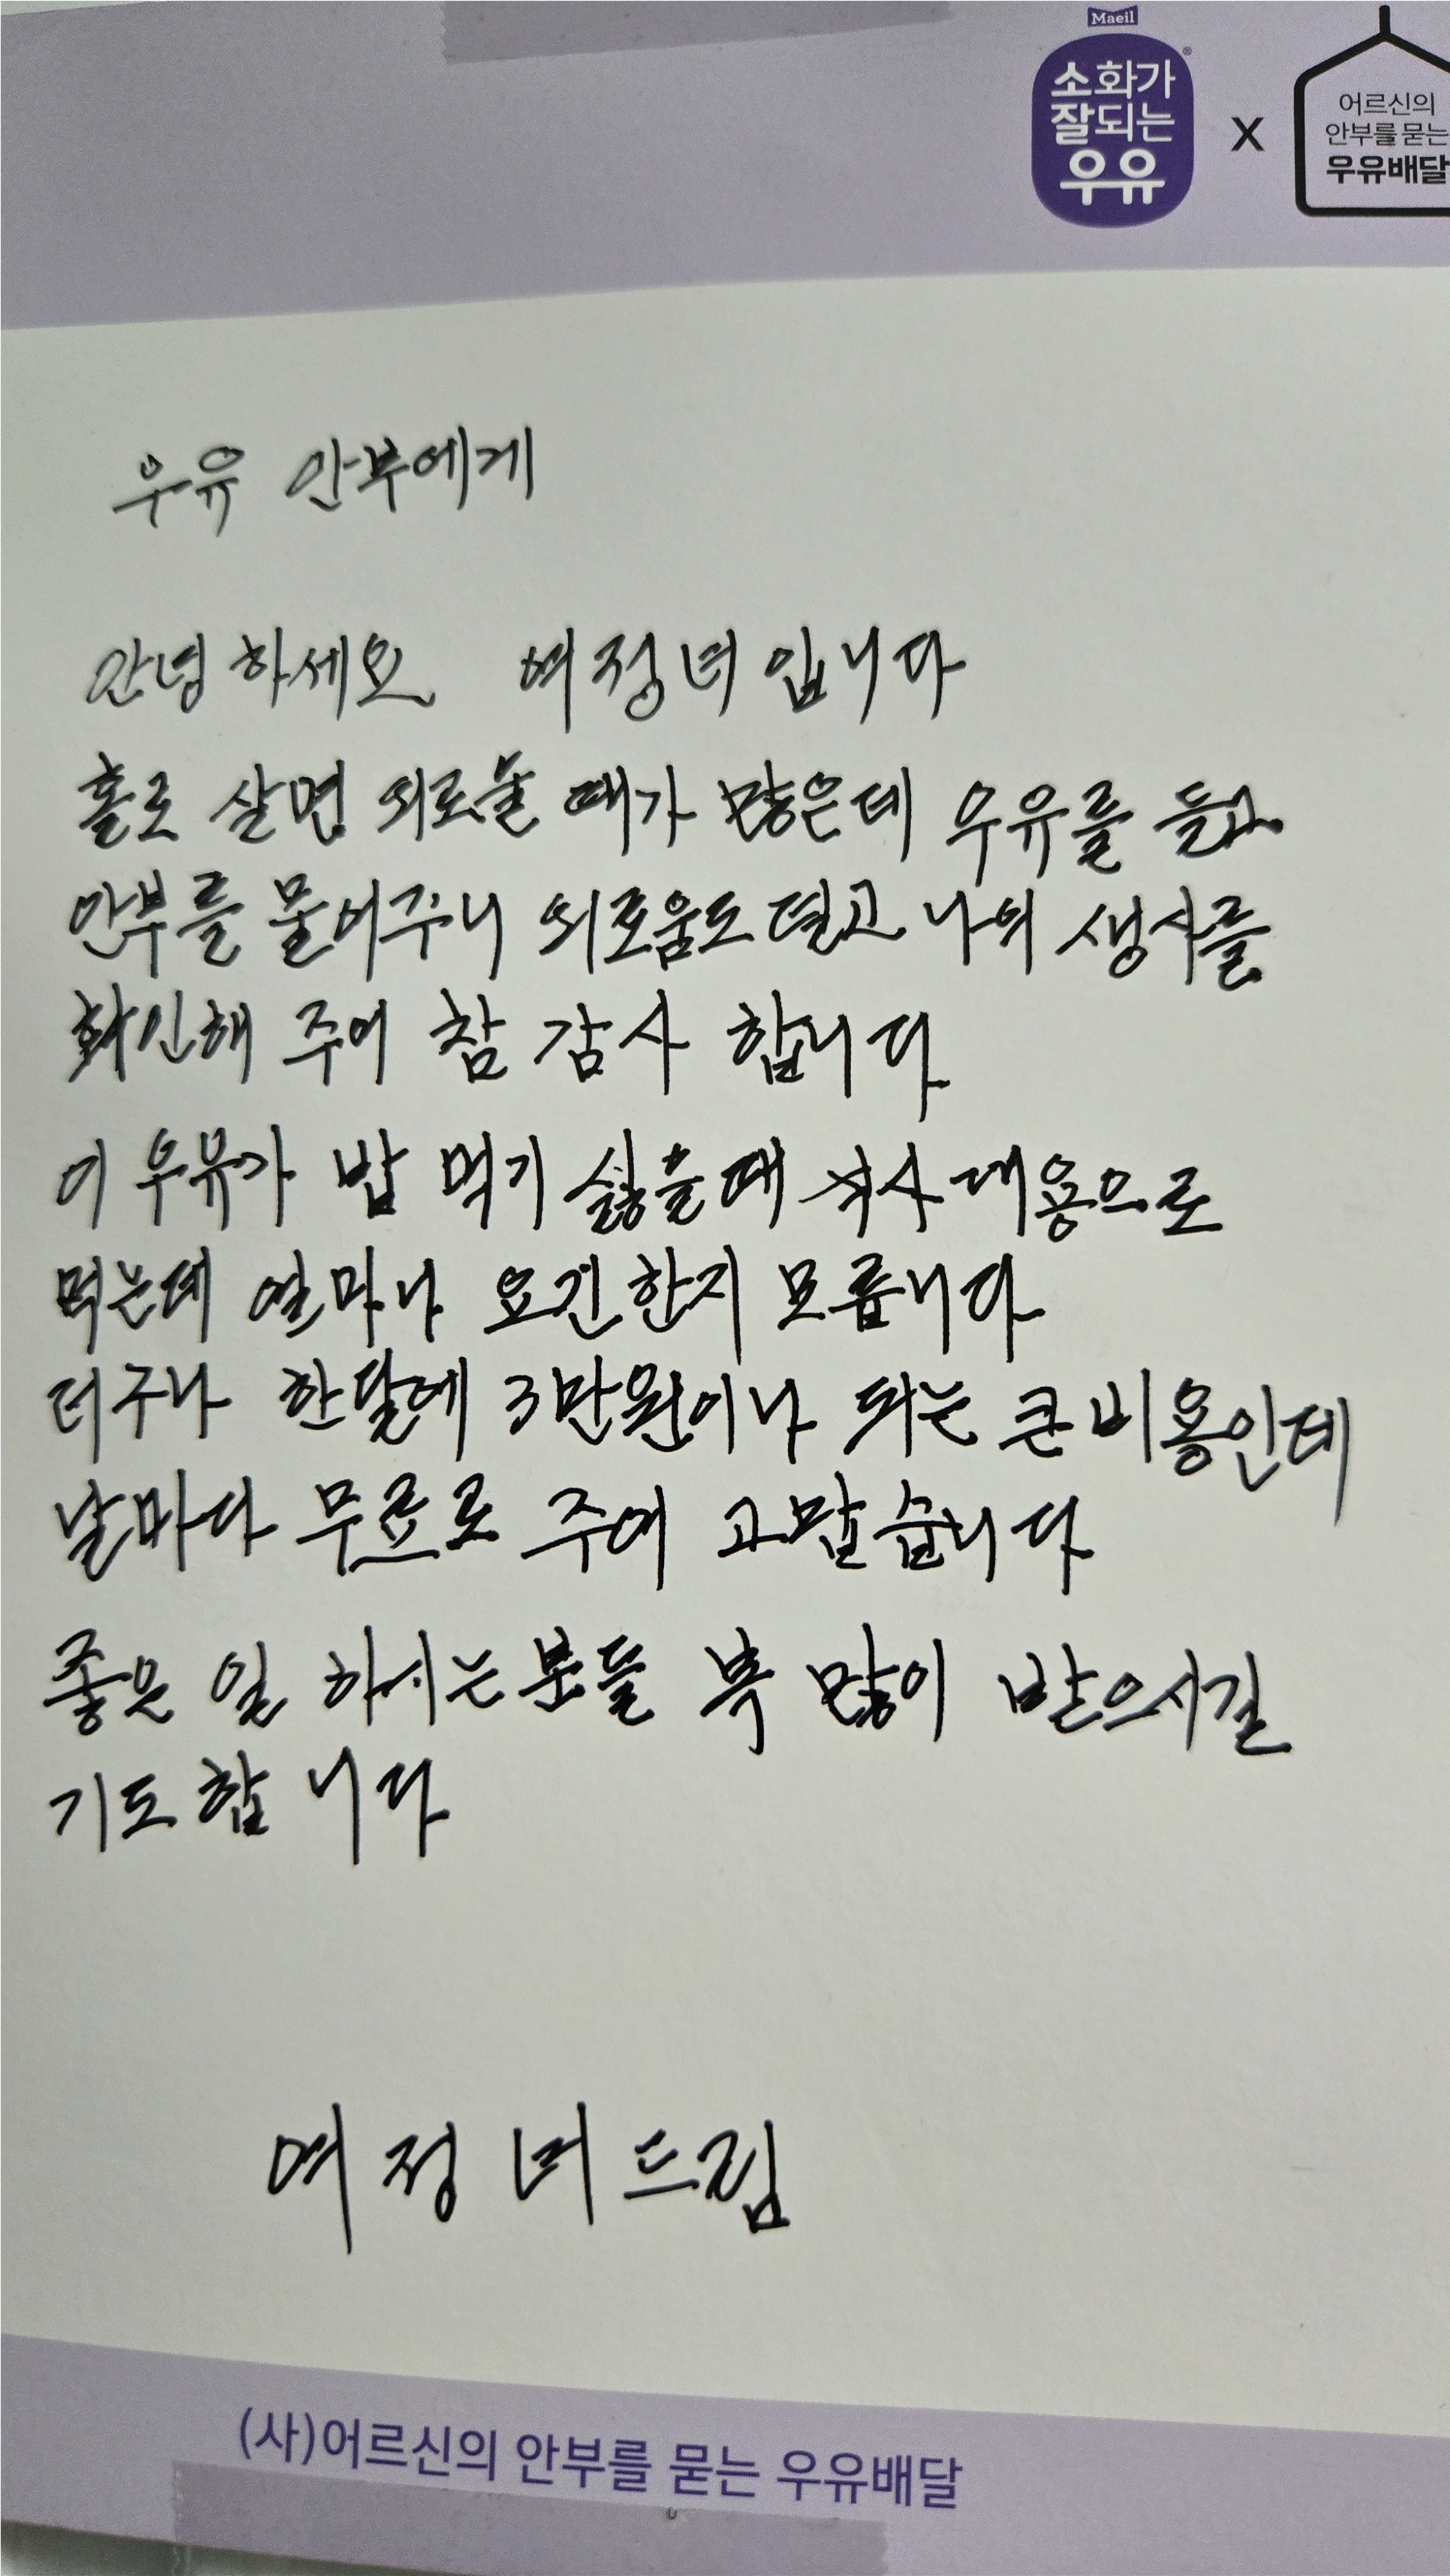 Maeil
소화가
잘되는
우유
X
어르신의
안부를 묻는
우유배달
우유 안부에게
안녕하세요 여정녀입니다
홀로 살면 외로울 때가 많은데 우유를 들고
안부를 물어주니 외로움도 덜고 나의 생사를
확인해 주어 참 감사 합니다
이 우유가 밥 먹기 싫을때 식사대용으로
먹는데 얼마나 요긴한지 모릅니다
더구나 한달에 3만원이나 되는 큰 비용인데
날마다 무료로 주어 고맙습니다
좋은 일 하시는분들 복 많이 받으시길
기도합니다
여정녀드림
(사)어르신의 안부를 묻는 우유배달